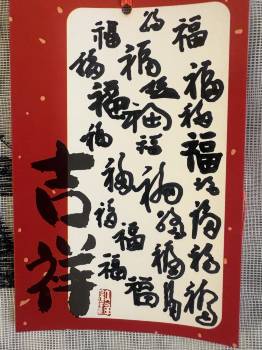 福福福福福福福福
福福福福福福福福福
福福福福福福福福福
吉祥